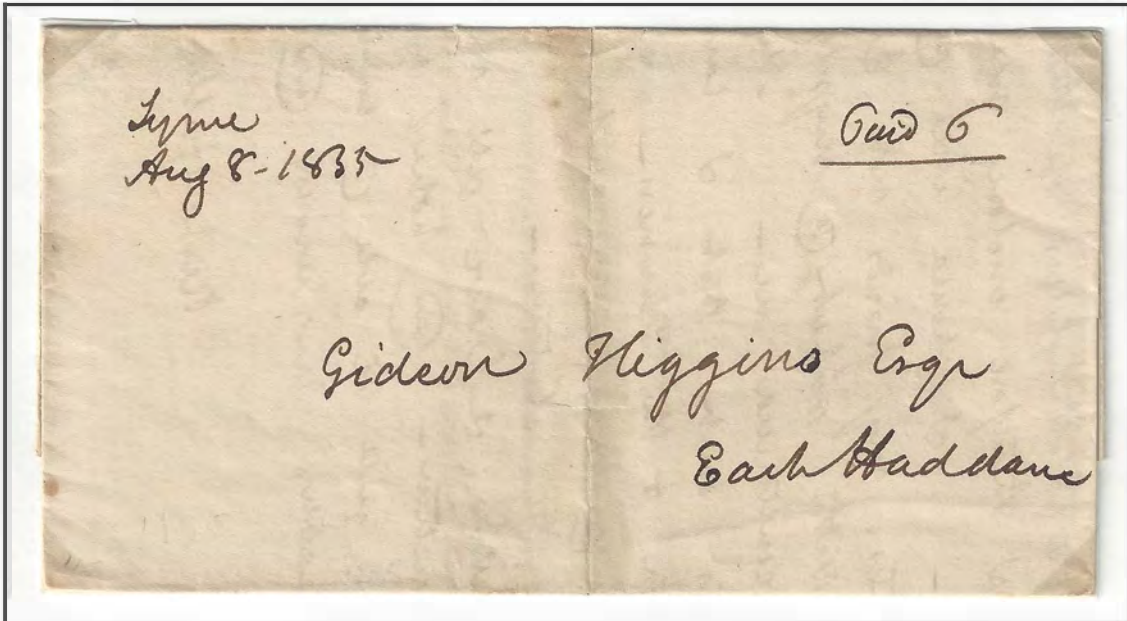 Lyme
Aug 8 - 1835
Paid 6
Gideon Higgins Esqr
East Haddam